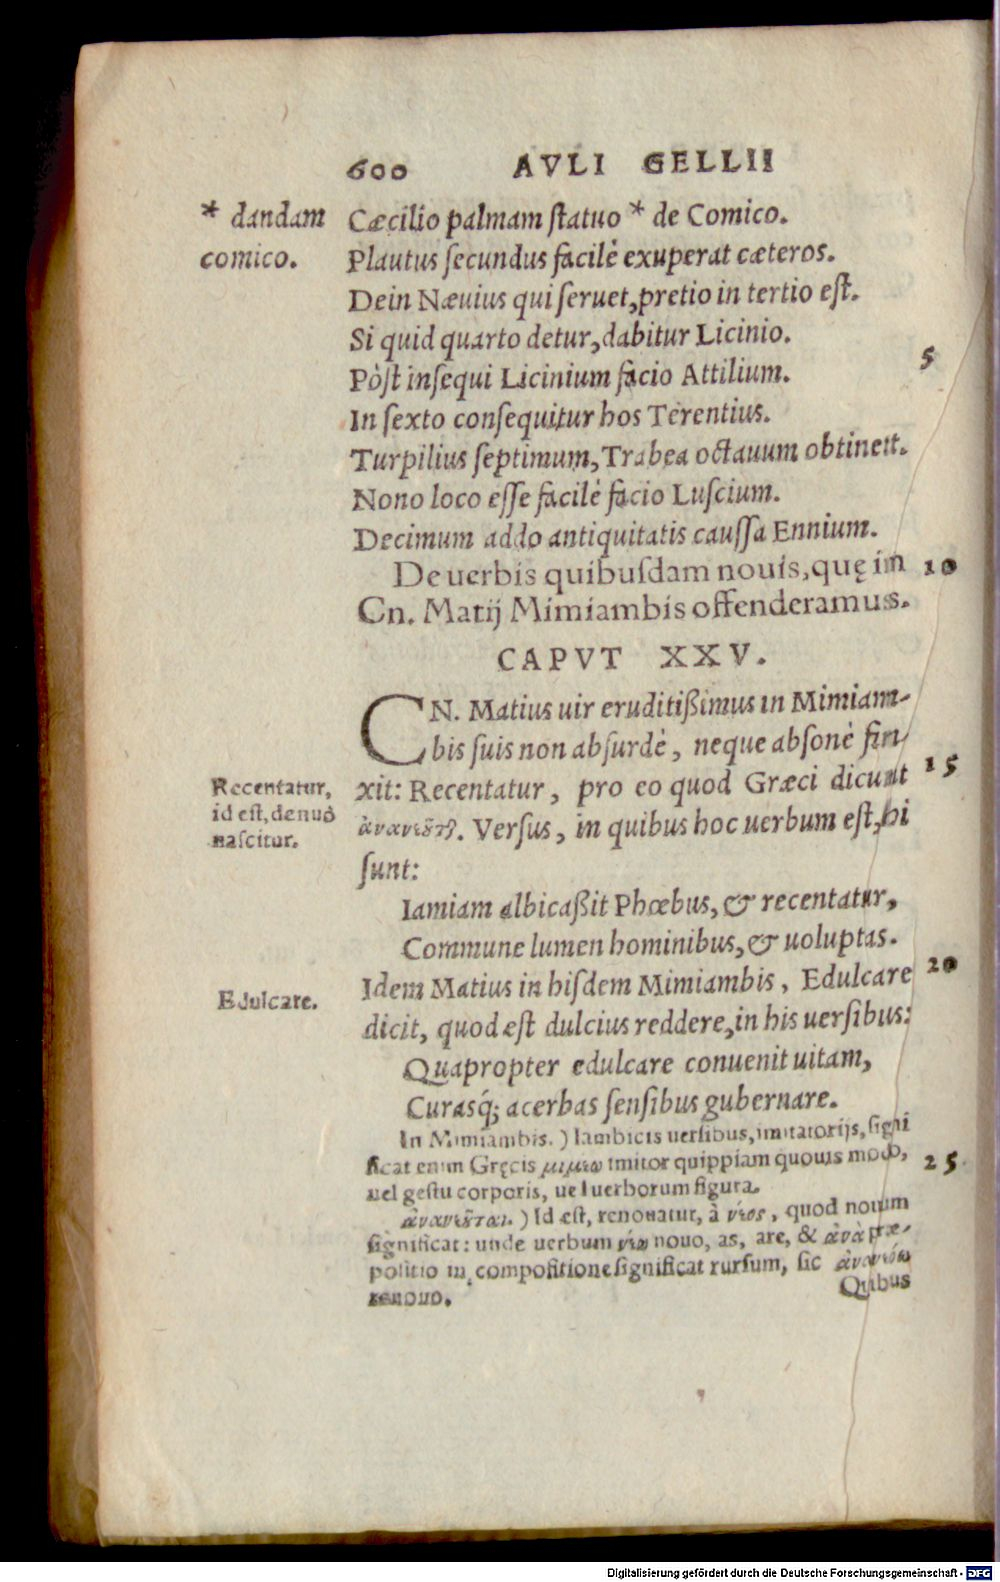 600 AVLI GELLII
* dandam
comico.
Cæcilio palmam statuo * de Comico.
Plautus secundus facilè exuperat cæteros.
Dein Næuius qui seruet, pretio in tertio est.
Si quid quarto detur, dabitur Licinio.
5
Pòst insequi Licinium facio Attilium.
In sexto consequitur hos Terentius.
Turpilius septimum, Trabea octauum obtinett.
Nono loco esse facilè facio Luscium.
Decimum addo antiquitatis caussa Ennium.
De uerbis quibusdam nouis, quę in 10
Cn. Matij Mimiambis offenderamus.
CAPVT XXV.
CN. Matius uir eruditißimus in Mimiam-
bis suis non absurdè, neque absonè fin-
15
Recentatur,
id est, denuò
nascitur.
xit: Recentatur, pro eo quod Græci dicunt
ἀνανεοῦται. Versus, in quibus hoc uerbum est, hi
sunt:
Iamiam albicaßit Phœbus, & recentatur,
Commune lumen hominibus, & uoluptas.
20
Idem Matius in hisdem Mimiambis, Edulcare
Edulcare.
dicit, quod est dulcius reddere, in his uersibus:
Quapropter edulcare conuenit uitam,
Curasq́; acerbas sensibus gubernare.
In Mimiambis.) Iambicis uersibus, imitatorijs, signi
ficat enim Gręcis μιμέω imitor quippiam quouis modo, 25
uel gestu corporis, uel uerborum figura.
ἀνανεοῦται.) Id est, renouatur, à νέος, quod nouum
significat: unde uerbum νεόω nouo, as, are, & ἀνὰ præ-
positio in compositione significat rursum, sic ἀνανεόω
renouo.
Quibus
Digitalisierung gefördert durch die Deutsche Forschungsgemeinschaft - DFG